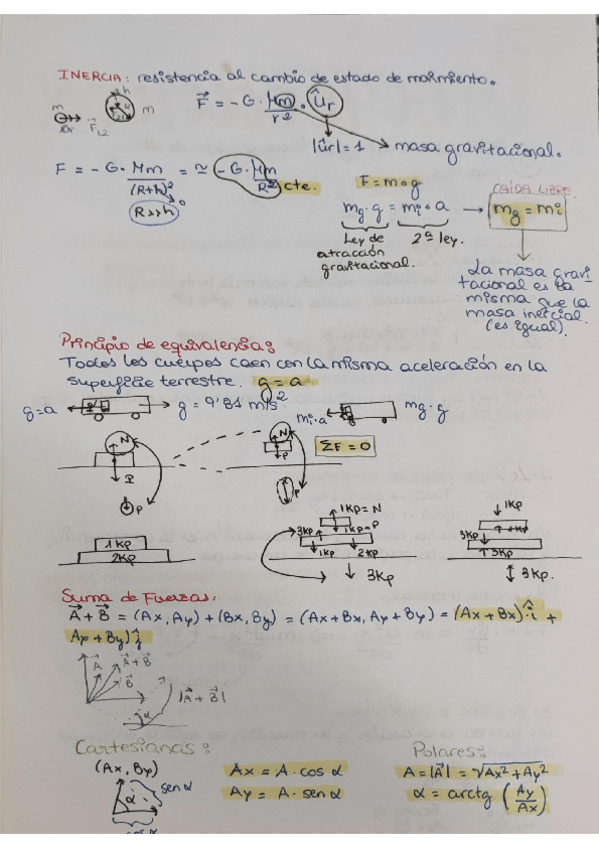 INERCIA: resistencia al cambio de estado de movimiento.
m h m
F⃗ = -G · Mm/r² · ûr
F⃗12
|ûr| = 1 masa gravitacional.
F = -G · Mm/(R+h)² = ≃ -G · Mm/R² cte.
R>>h 0
F = m·g
CAÍDA LIBRE
mg · g = mi · a → mg = mi
Ley de atracción gravitacional. 2ª ley.
La masa gravi
tacional es la
misma que la
masa inercial.
(es igual).
Principio de equivalencia:
Todos los cuerpos caen con la misma aceleración en la
superficie terrestre. g = a
g=a g = 9'81 m/s² mi·a mg·g
N N ΣF = 0
P P
P
1Kp = N 1Kp
1Kp 3Kp 1Kp = P 1Kp
2Kp 1Kp 2Kp 3Kp 3Kp
3Kp 3Kp.
Suma de Fuerzas:
A⃗ + B⃗ = (Ax, Ay) + (Bx, By) = (Ax+Bx, Ay+By) = (Ax+Bx)·î +
Ay + By) ĵ
A⃗ A⃗+B⃗
B⃗ |A⃗+B⃗|
α
Cartesianas: Polares:
(Ax, By) Ax = A · cos α A = |A⃗| = √Ax²+Ay²
sen α Ay = A · sen α α = arctg (Ay/Ax)
α
cos α